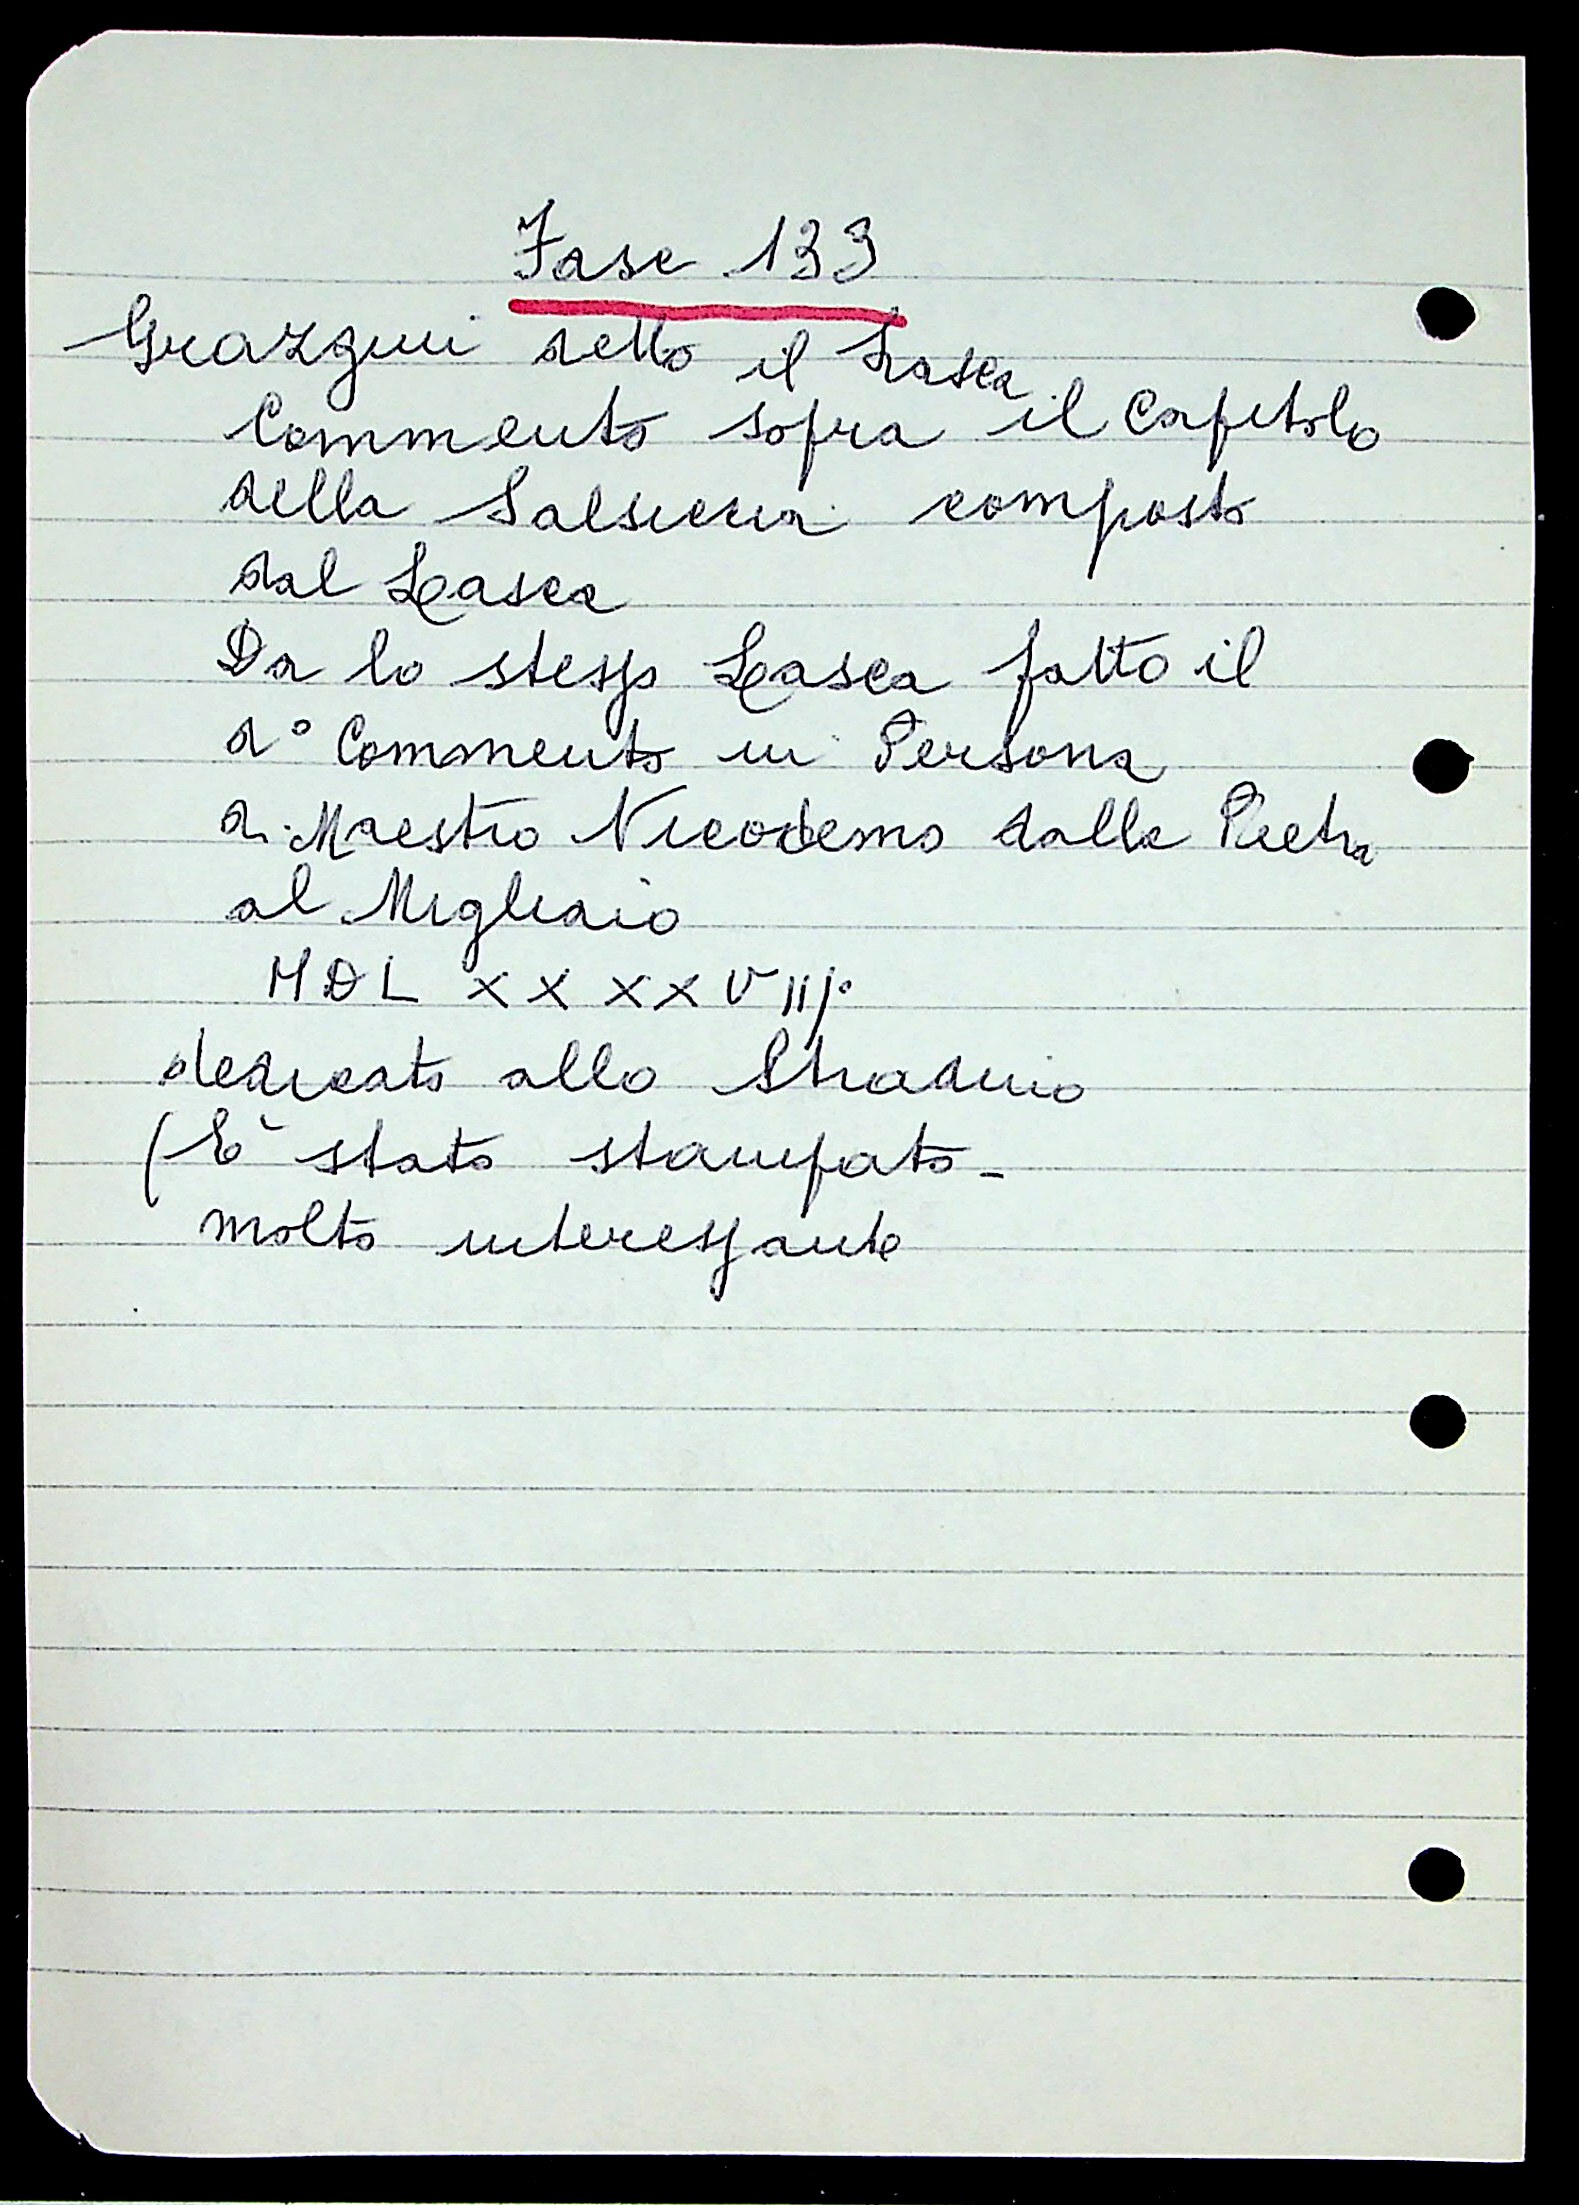 Fasc 133
Grazzini detto il Lasca
Commento sopra il Capitolo
della Salsiccia composto
dal Lasca
Da lo stesso Lasca fatto il
d° Commento in Persona
di Maestro Nicodemo dalla Pietra
al Migliaio
MDL XXXXVIIj°
dedicato allo Stradino
(È stato stampato -
molto interessante